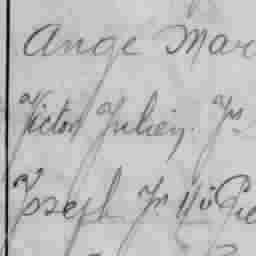 Ange Mar
Victor Julien. Jn
Joseph Jn